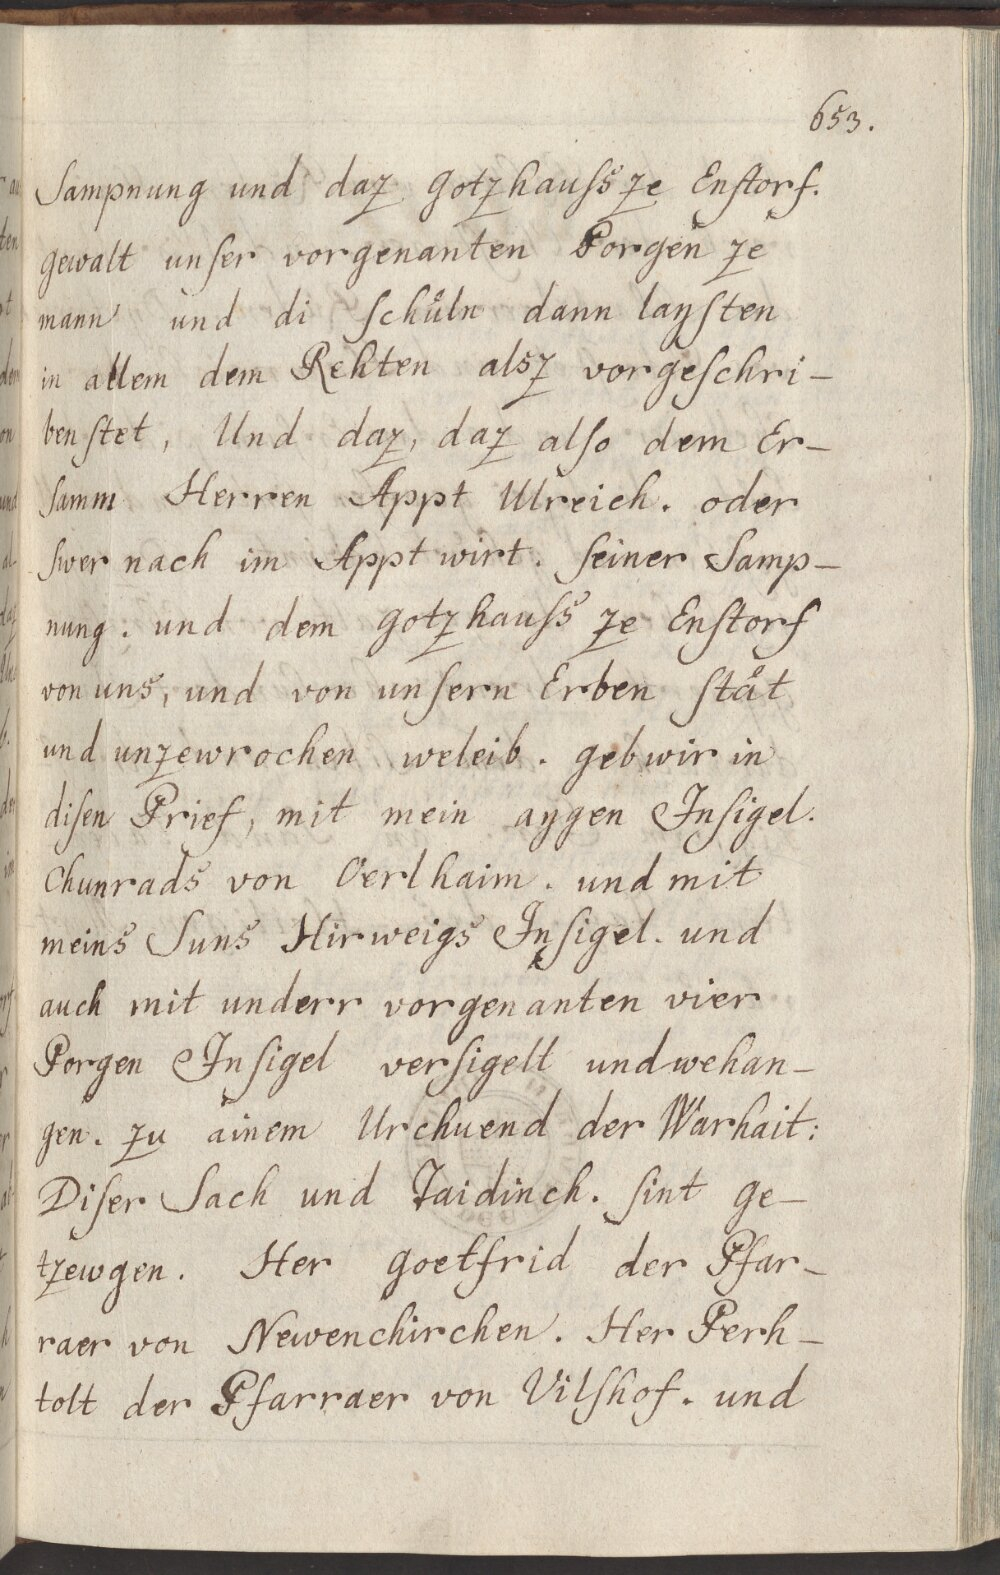 653.
Sampnung und daz Gotzhauſs ze Enſtorf.
gewalt unſer vorgenanten Porgen ze
mann und di ſchůln dann layſten
in allem dem Rehten alsz vorgeſchri-
ben ſtet, Und daz, daz alſo dem Er-
ſamm Herren Appt Ulreich. oder
ſwer nach im Appt wirt. ſeiner Samp-
nung. und dem Gotzhauſs ze Enſtorf
von uns, und von unſern Erben ſtåt
und unzewrochen weleib. geb wir in
diſen Prief, mit mein aygen Inſigel.
Chunrads von Oerlhaim. und mit
meins Suns Hirweigs Inſigel. und
auch mit underr vorgenanten vier
Porgen Inſigel verſigelt und wehan-
gen. zu ainem Urchuend der Warhait:
Diſer Sach und Taidinch. ſint ge-
tzewgen. Her Goetfrid der Pfar-
raer von Newenchirchen. Her Perh-
tolt der Pfarraer von Vilſhof. und